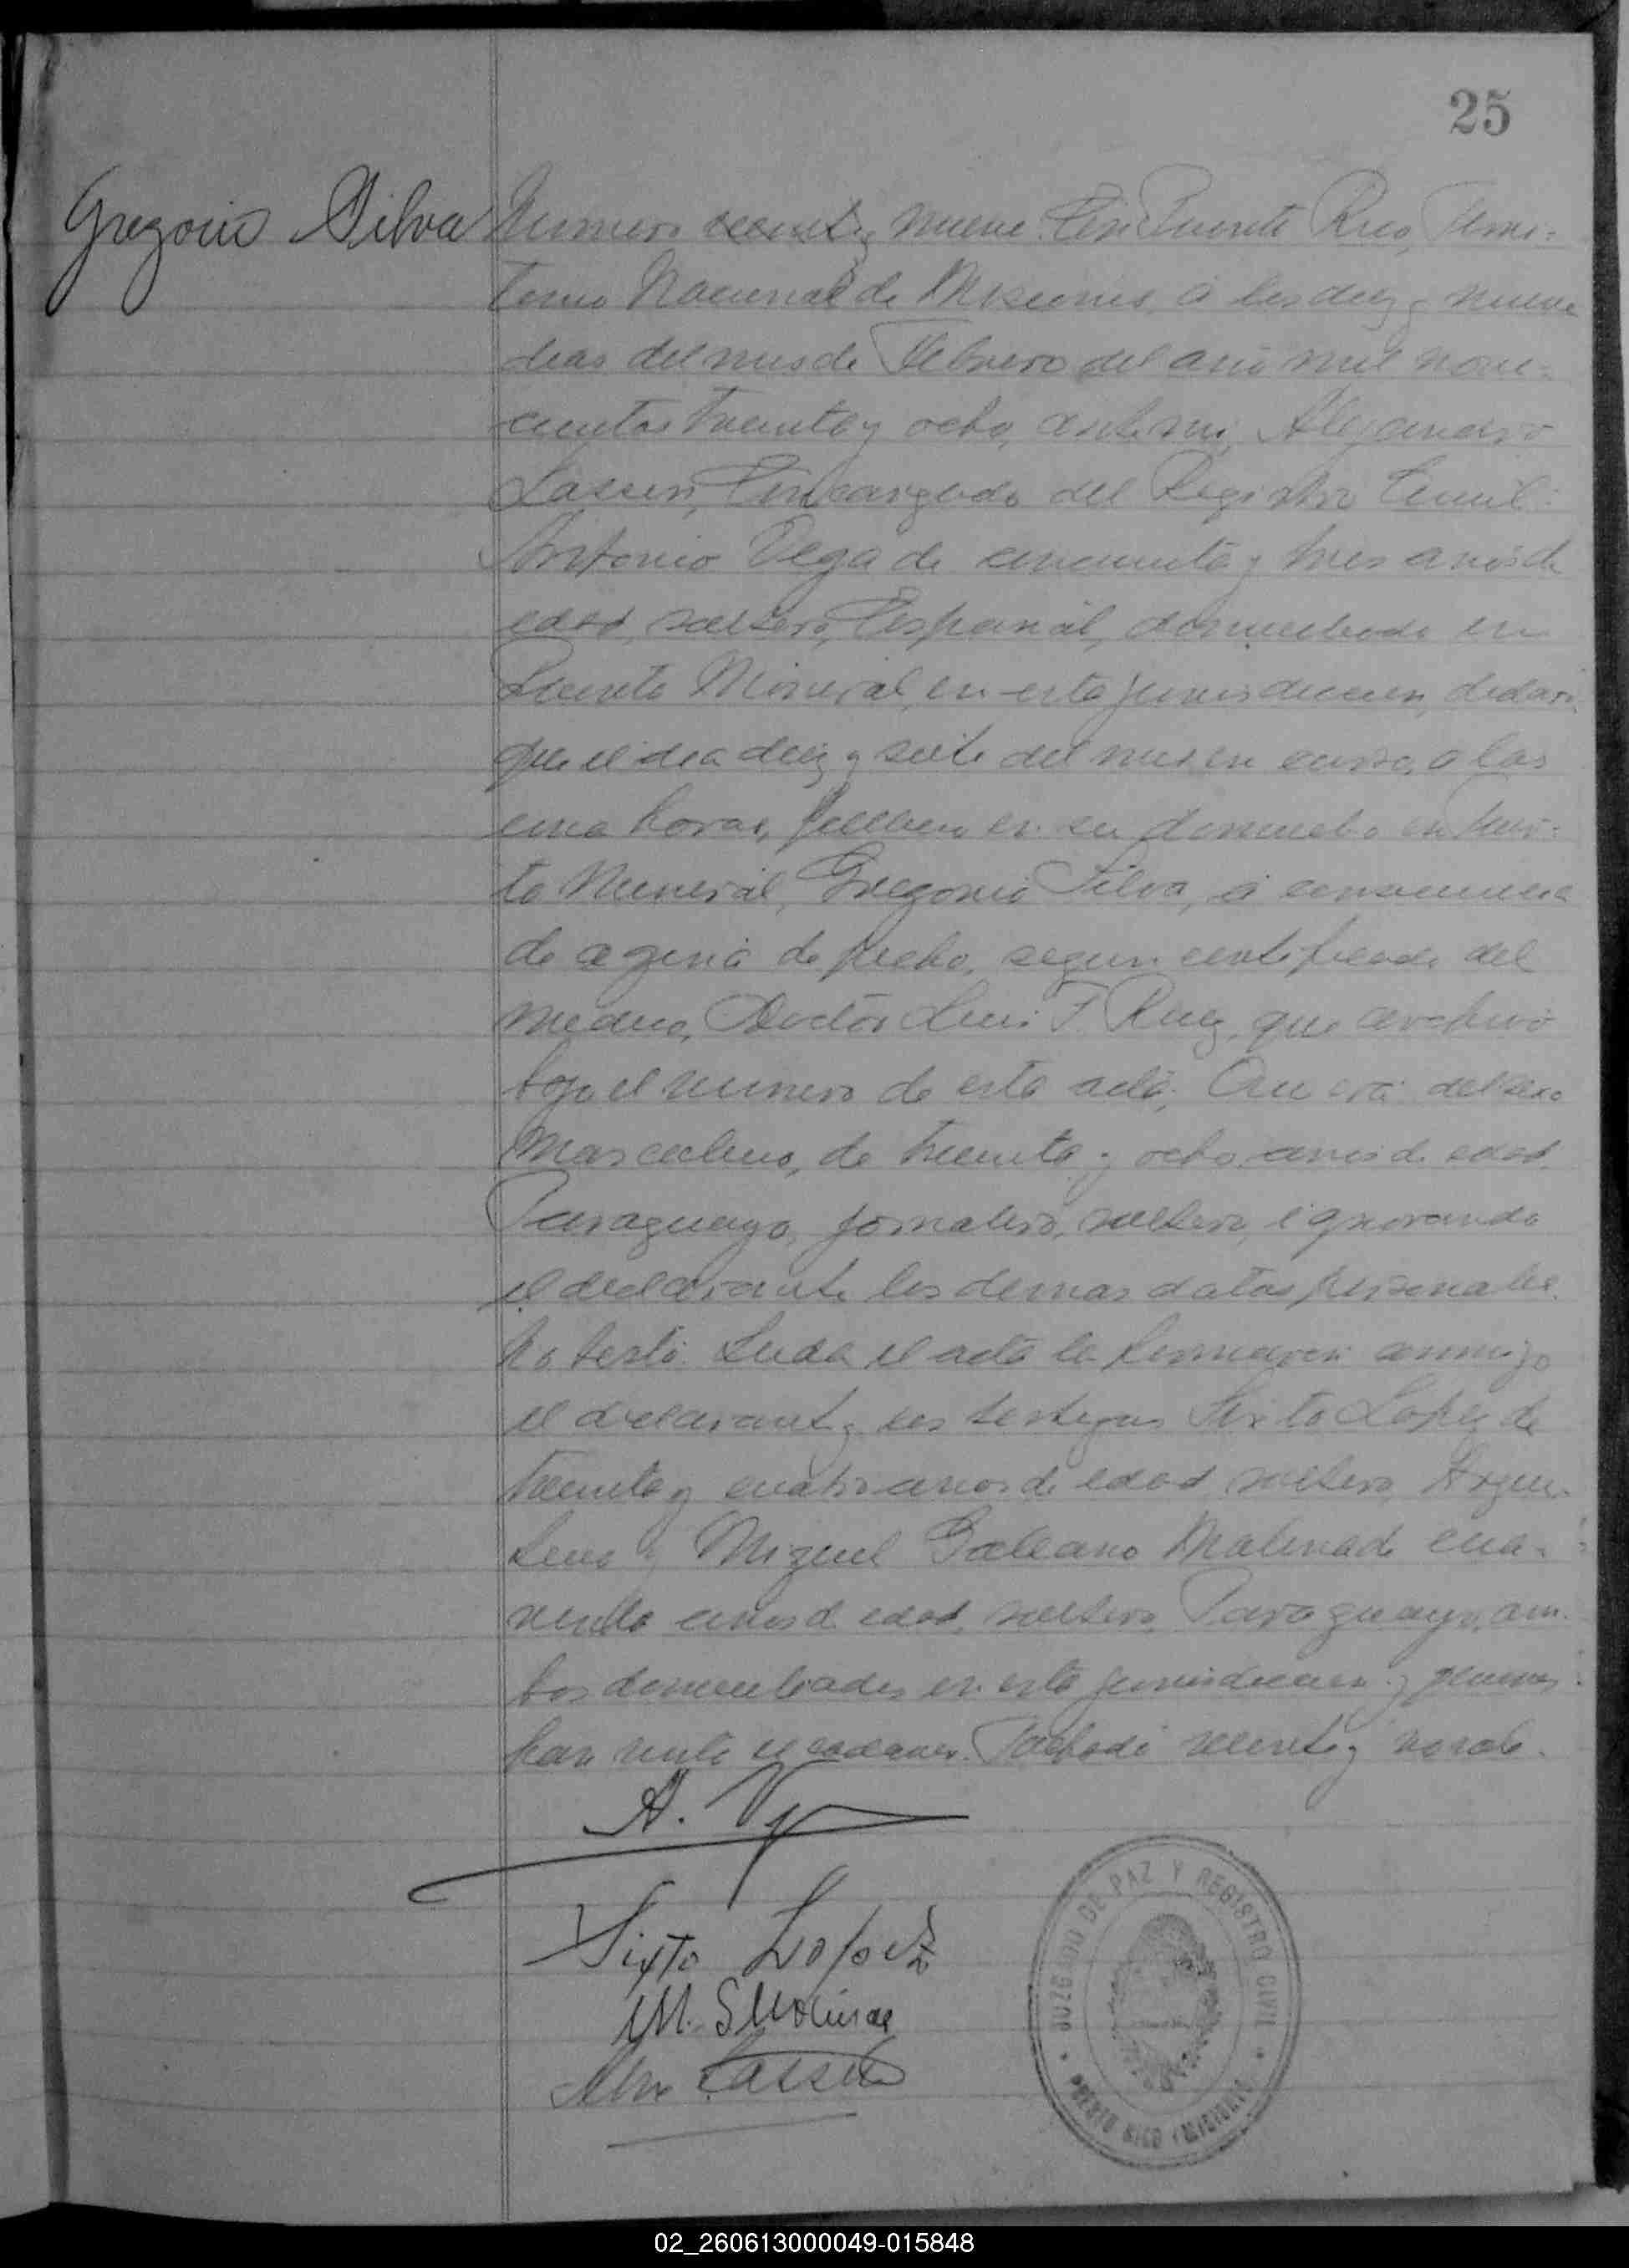 25
Gregorio Silva
Numero veinte y nueve. En Puerto Rico, Terri-
torio Nacional de Misiones, á los diez y nueve
dias del mes de Febrero del año mil nove-
cientos treinta y ocho, ante mi, Alejandro
Encargado del Registro Civil:
Antonio Vega de cincuenta y tres años de
edad, soltero, Español, domiciliado en
Puerto Mineral, en esta jurisdiccion, declaró:
Que el dia diez y siete del mes en curso, a las
horas, fallecio en su domicilio en Puer-
to Mineral, Gregorio Silva, á consecuencia
de de pecho, segun certificado del
medico, Doctor Luis F. Ruiz, que archivo
bajo el numero de esta acta; Que era del sexo
masculino, de treinta y ocho años de edad,
Paraguayo, jornalero, soltero, ignorando
el declarante los demas datos personales.
No testó. Leida el acta la firmaron conmigo
el declarante y los testigos Sixto Lopez de
treinta y cuatro años de edad, soltero, Argen-
tino y Miguel Galeano Molina de cua-
renta años de edad, soltero, Paraguayo, am-
bos domiciliados en esta jurisdiccion y quienes
han visto el cadaver. Tachado veinte y no vale.
A. V
Sixto Lopez
M. G Molinas
JUZGADO DE PAZ Y REGISTRO CIVIL
PUERTO RICO (MISIONES)
02_260613000049-015848